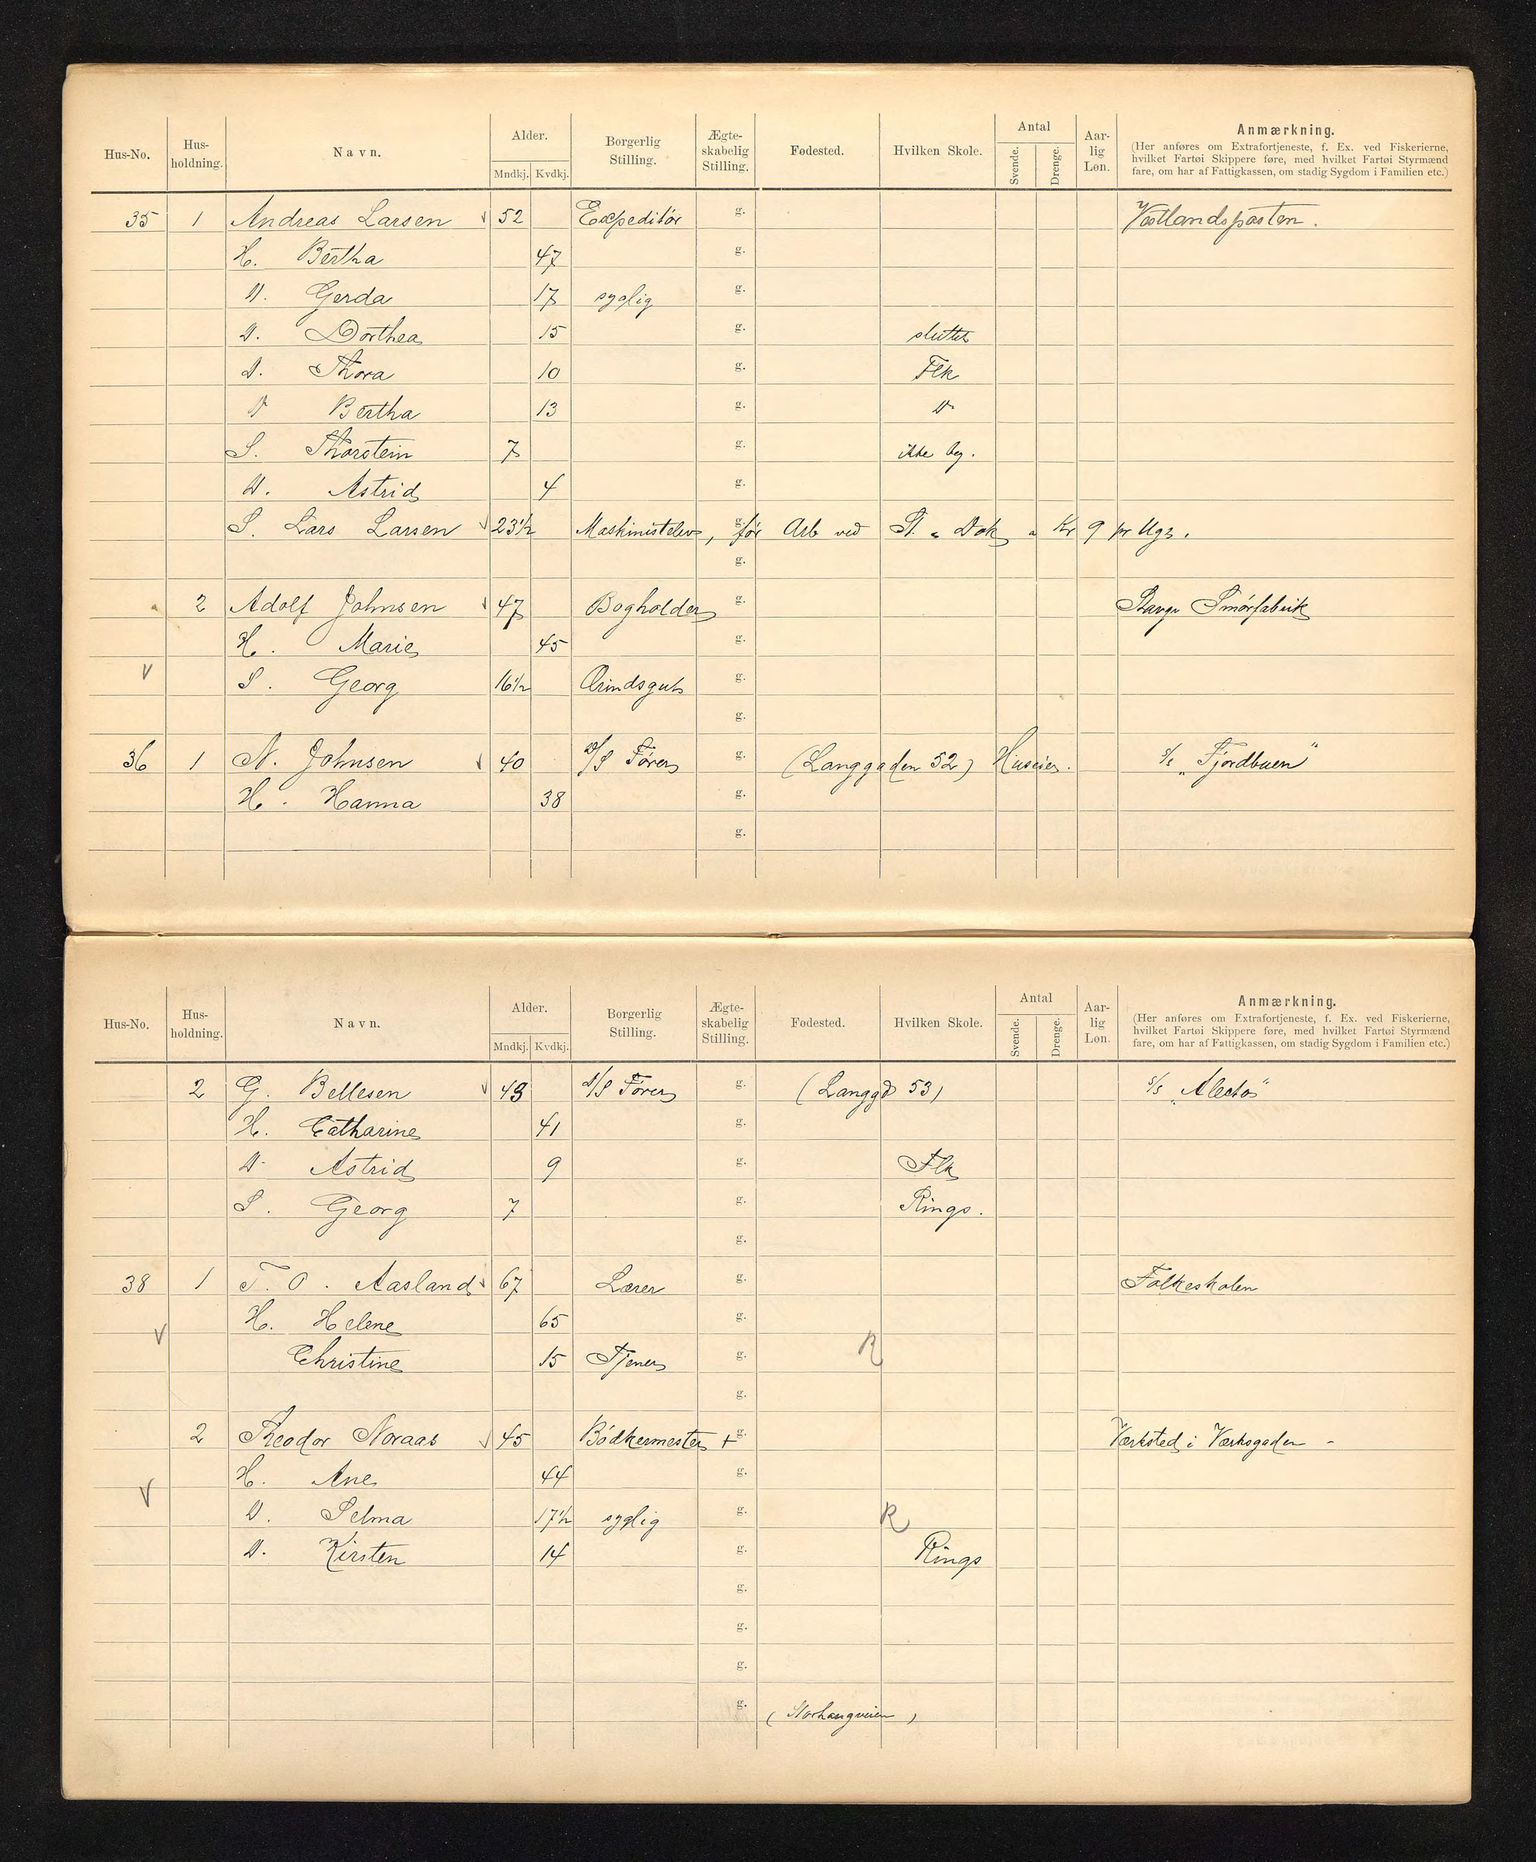 Hus-No. Hus-holdning. Navn. Alder. Mndkj. Kvdkj. Borgerlig Stilling. Ægte-skabelig Stilling. Fødested. Hvilken Skole. Antal Svende. Drenge. Aar-lig Løn. Anmærkning.
(Her anføres om Extrafortjeneste, f. Ex. ved Fiskerierne,
hvilket Fartøi Skippere føre, med hvilket Fartøi Styrmænd
fare, om har af Fattigkassen, om stadig Sygdom i Familien etc.)
35 1 Andreas Larsen 52 Expeditør g. Vestlandsposten.
H. Bertha 47 g.
D. Gerda 17 syglig g.
D. Dorthea 15 g. sluttet
D. Thora 10 g. Flk
D Bertha 13 g. D-
S. Thorstein 7 g. ikke beg.
D. Astrid 4 g.
S. Lars Larsen 23½ Maskinistelev, g. før Arb ved St. " Dok a Kr 9 pr Uge.
g.
2 Adolf Johnsen 47 Bogholder g. Stavgr Smørfabrik
H. Marie 45 g.
V S. Georg 16½ Ærindsgut g.
g.
36 1 N. Johnsen 40 D/S Fører g. (Langgaden 52) Huseier. s/s "Fjordbuen"
H. Hanna 38 g.
g.
Hus-No. Hus-holdning. Navn. Alder. Mndkj. Kvdkj. Borgerlig Stilling. Ægte-skabelig Stilling. Fødested. Hvilken Skole. Antal Svende. Drenge. Aar-lig Løn. Anmærkning.
(Her anføres om Extrafortjeneste, f. Ex. ved Fiskerierne,
hvilket Fartøi Skippere føre, med hvilket Fartøi Styrmænd
fare, om har af Fattigkassen, om stadig Sygdom i Familien etc.)
2 G. Bellesen 43 D/S Fører g. (Langgd 53) s/s "Alecto"
H. Catharine 41 g.
D. Astrid 9 g. Flk
S. Georg 7 g. Rings.
g.
38 1 T. O. Aasland 67 Lærer g. Folkeskolen
V H. Helene 65 g.
Christine 15 Tjener g. R
g.
2 Theodor Noraas 45 Bødkermester + g. Værksted i Værksgaden -
H. Ane 44 g.
V D. Selma 17½ syglig g. R
D. Kirsten 14 g. Rings
g.
g.
g.
g. (Storhaugveien)